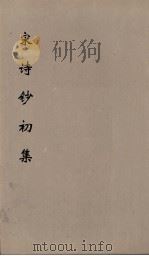 詩鈔初集
mtoou.info